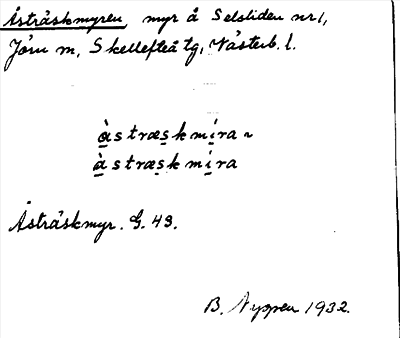 Åsträskmyren, myr å Selsliden nr 1,
Jörn m, Skellefteå tg, Västerb. l.
àstræskmíra ~
àstræskmíra
Åsträskmyr. G. 43.
B. Nyggren 1932.